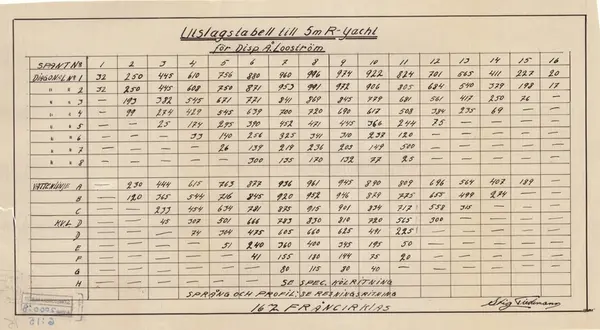 Utslagstabell till 5m R-Yacht
för Disp A. Looström
SPANT No 1 2 3 4 5 6 7 8 9 10 11 12 13 14 15 16
DIAGONAL No 1 32 250 445 610 756 880 960 996 974 922 824 701 565 411 227 20
" " 2 32 250 445 608 750 871 953 991 972 906 805 684 540 379 198 17
" " 3 — 193 382 545 671 771 841 869 845 779 681 561 417 250 76 —
" " 4 — 99 274 429 545 639 700 720 690 617 508 384 235 69 — —
" " 5 — — 25 174 295 390 452 471 445 366 244 75 — — — —
" " 6 — — — 33 140 256 325 341 310 232 120 — — — — —
" " 7 — — — — 26 139 219 236 203 149 500 — — — — —
" " 8 — — — — — 300 135 170 132 77 25 — — — — —
VATTENLINJE A — 230 444 615 763 877 936 961 945 890 809 696 564 407 189 —
B — 120 365 544 716 845 920 952 946 879 775 655 499 274 — —
C — — 233 454 634 781 875 915 901 834 717 558 315 — — —
KVL D — — 45 307 501 666 783 830 810 720 565 300 — — — —
D — — — 74 304 475 605 660 625 491 225 — — — — —
E — — — — 51 240 360 400 345 195 50 — — — — —
F — — — — — 41 155 180 144 75 20 — — — — —
G — — — — — — 80 115 80 40 — — — — — —
H — — — — — — SE SPEC. KÖLRITNING — — — — —
SPRÅNG OCH PROFIL: SE RESNINGSRITNING